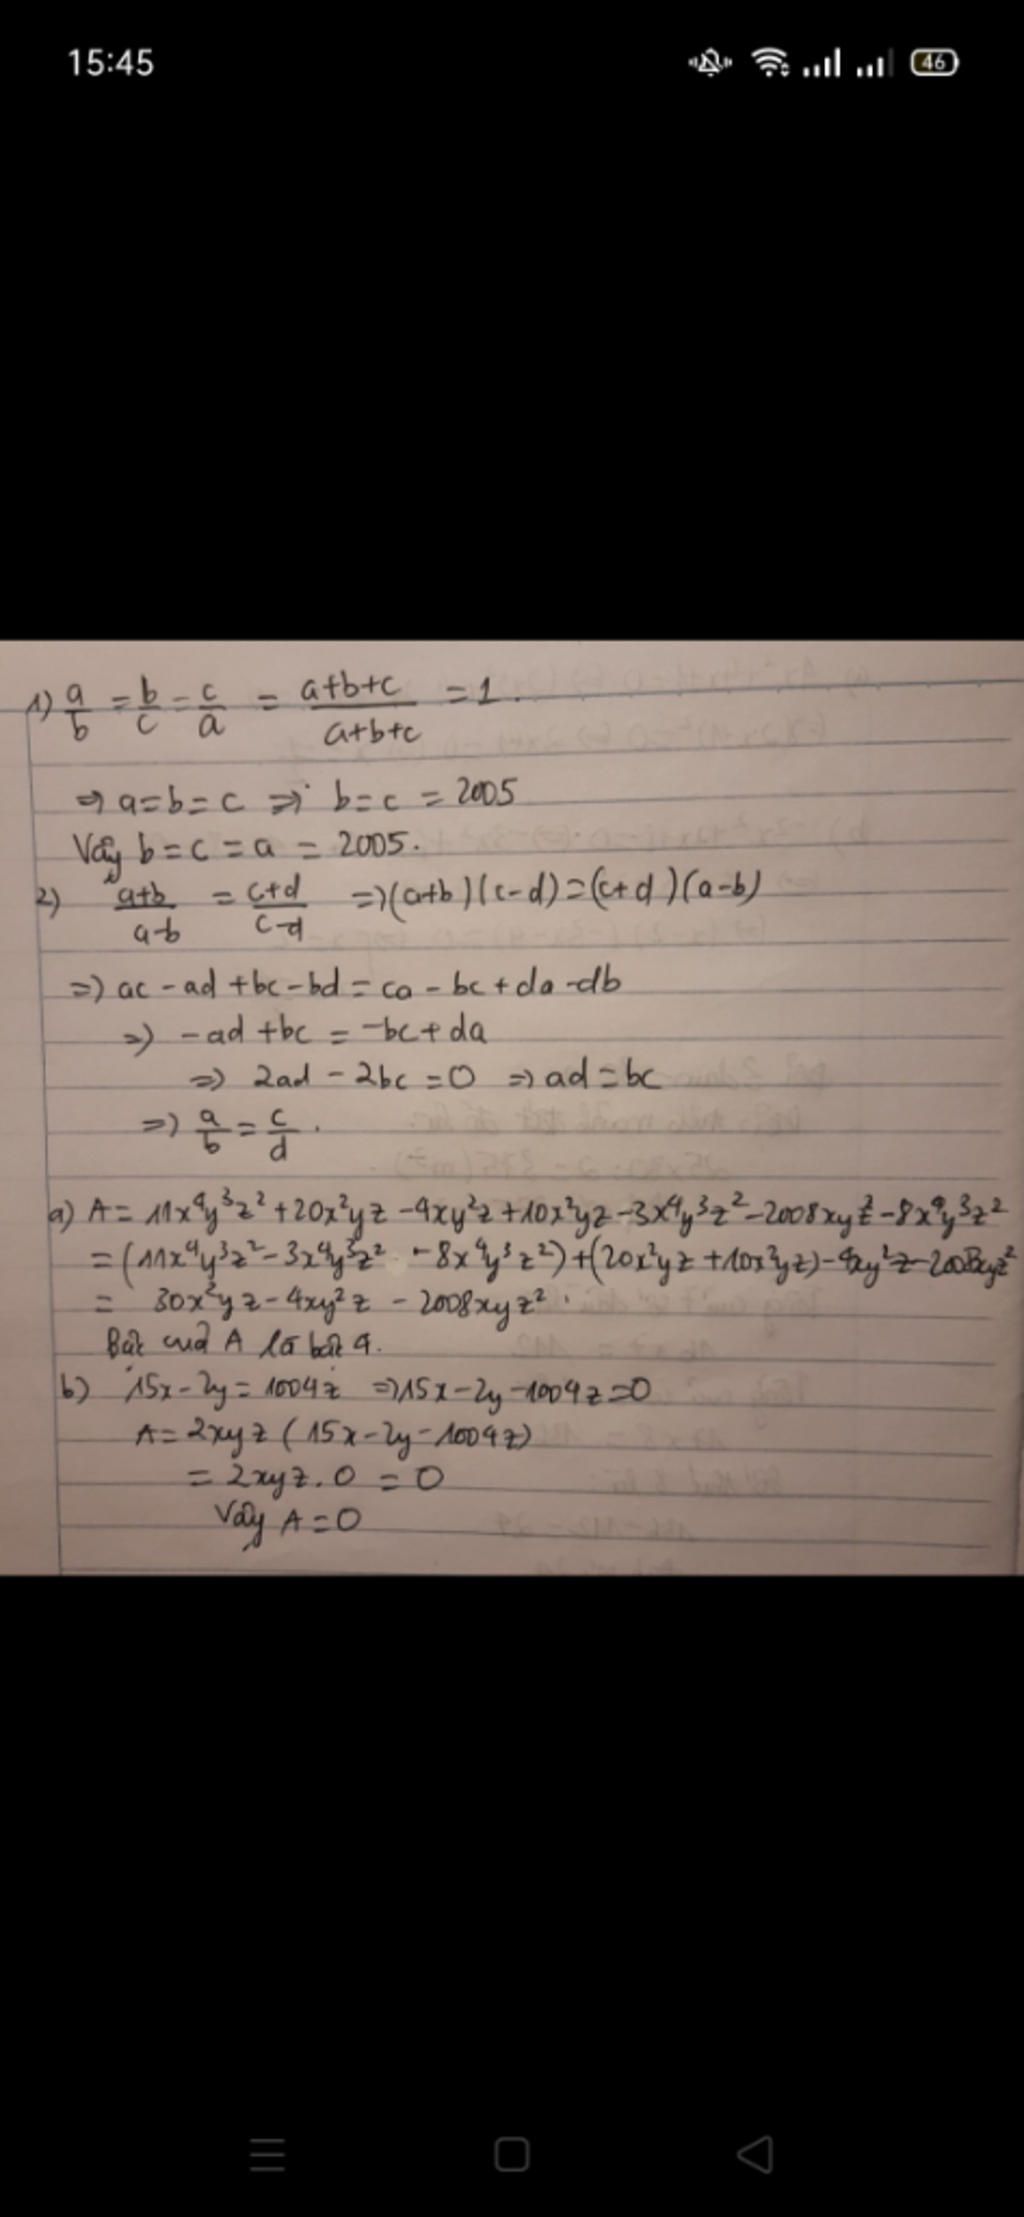 15:45
46
1) a/b = b/c = c/a = (a+b+c)/(a+b+c) = 1.
⇒ a=b=c ⇒ b=c = 2005
Vậy b=c=a = 2005.
2) (a+b)/(a-b) = (c+d)/(c-d) ⇒ (a+b)(c-d)=(c+d)(a-b)
⇒ ac - ad + bc - bd = ca - bc + da - db
⇒ -ad + bc = -bc + da
⇒ 2ad - 2bc = 0 ⇒ ad = bc
⇒ a/b = c/d.
a) A = 11x⁴y³z² + 20x²yz - 4xy²z + 10x²yz - 3x⁴y³z² - 2008xyz² - 8x⁴y³z²
= (11x⁴y³z² - 3x⁴y³z² - 8x⁴y³z²) + (20x²yz + 10x²yz) - 4xy²z - 2008xyz²
= 30x²yz - 4xy²z - 2008xyz².
Bậc cuả A là bậc 4.
b) 15x - 2y = 1004z ⇒ 15x - 2y - 1004z = 0
A = 2xyz (15x - 2y - 1004z)
= 2xyz . 0 = 0
Vậy A = 0